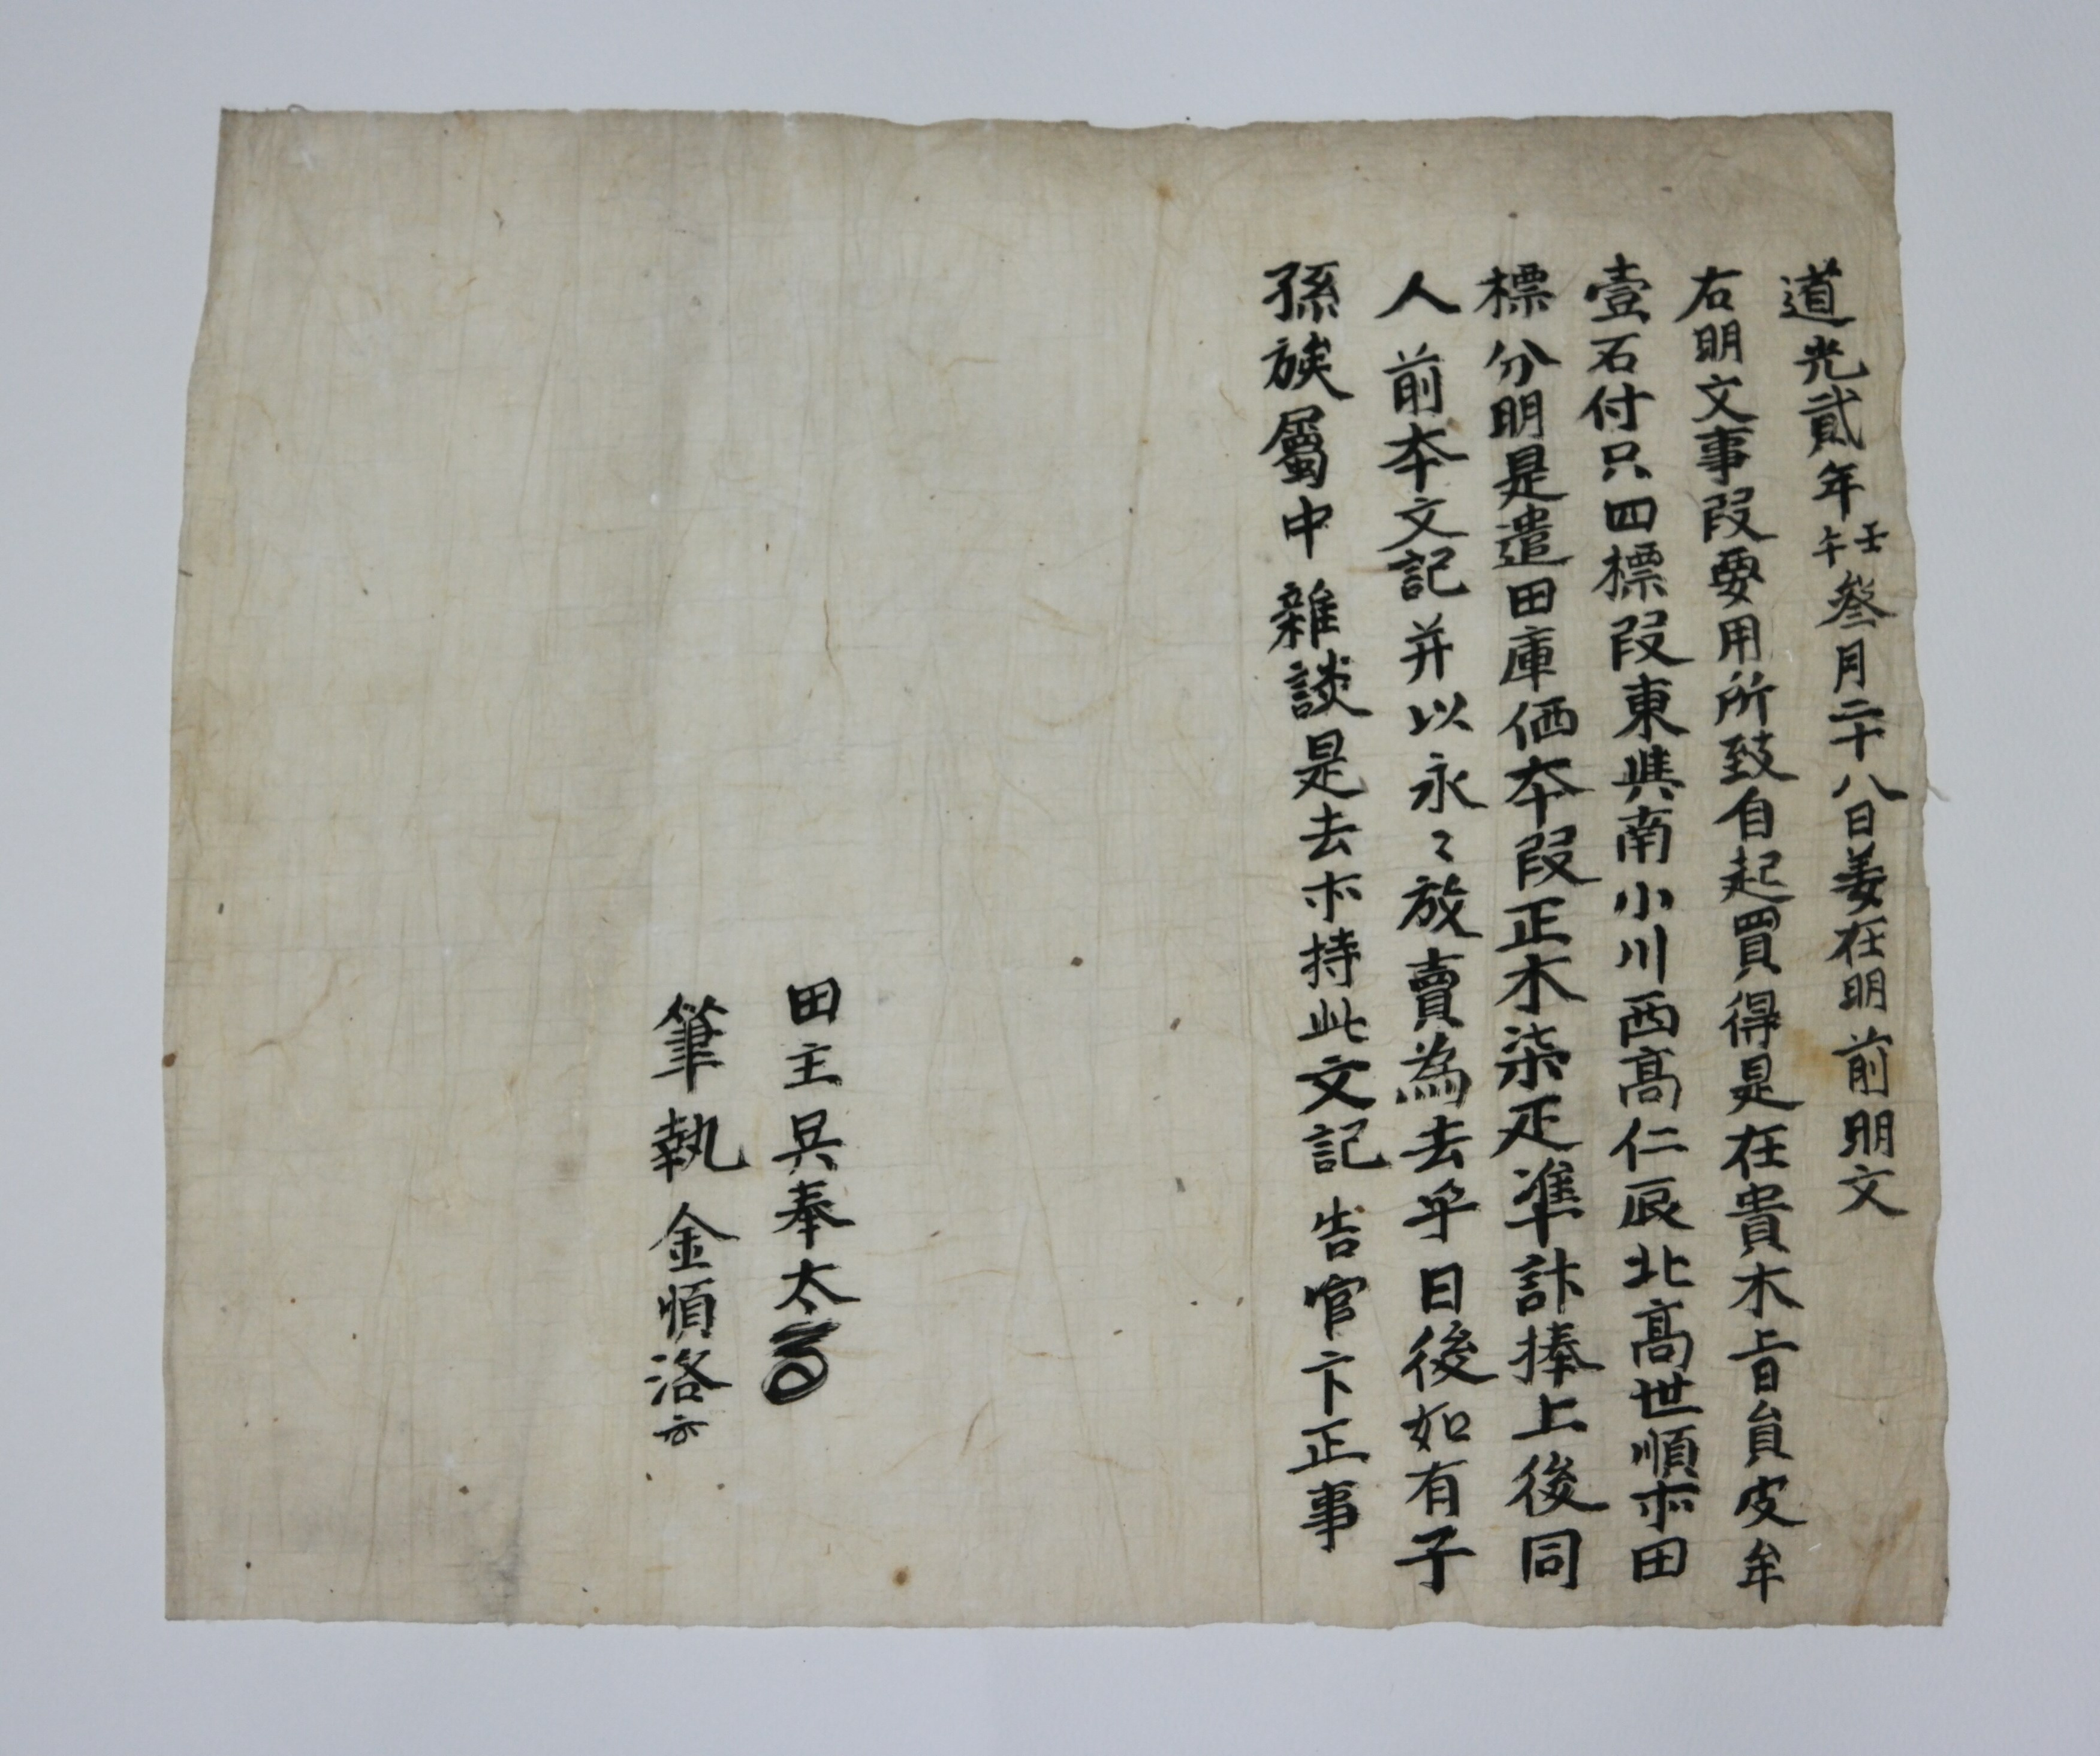 道光貳年壬午叄月二十八日姜在明前明文
右明文事段要用所致自起買得是在貴木㫖員皮牟
壹石付只四標段東㒷南小川西高仁辰北高世順亦田
標分明是遣田庫価夲段正木柒疋準計捧上後同
人前夲文記并以永〻放賣為去乎日後如有子
孫族屬中雜談是去亦持此文記告官卞正事
田主吳奉太
筆執金順洛